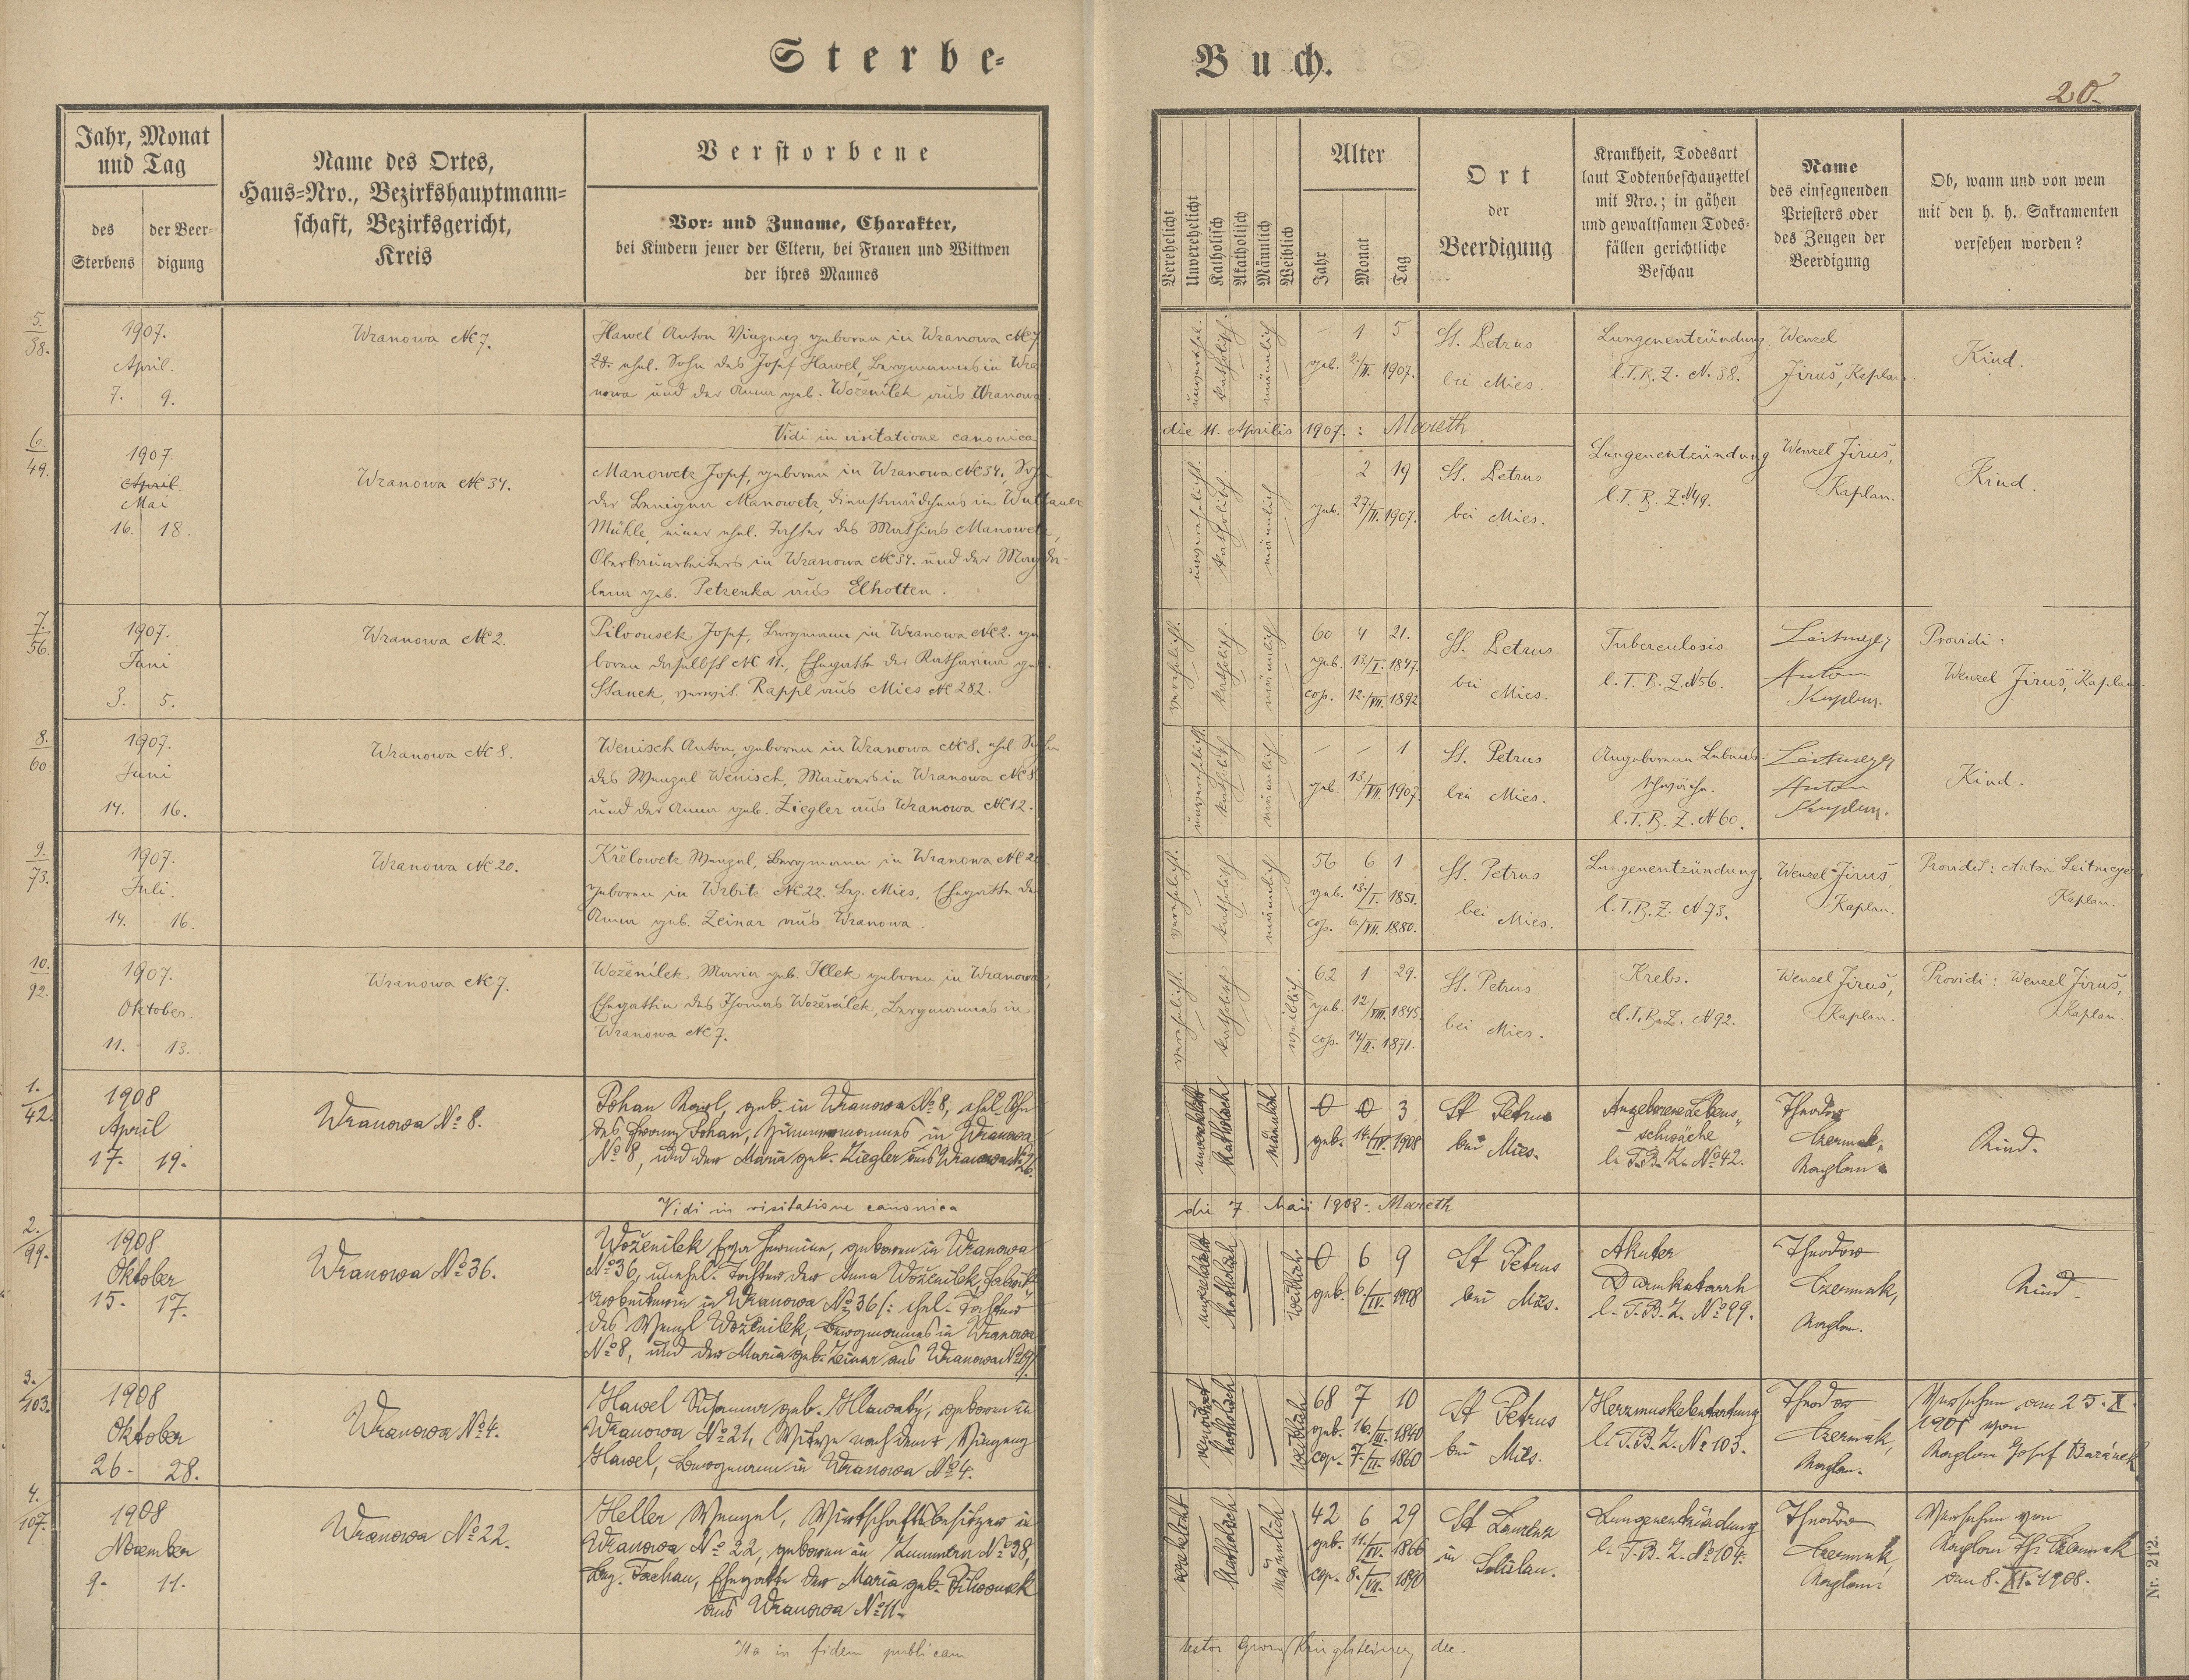 Sterbe-
Buch.
20.
Jahr, Monat
und Tag
des
Sterbens
der Beer-
digung
Name des Ortes,
Haus-Nro., Bezirkshauptmann-
schaft, Bezirksgericht,
Kreis
Verstorbene
Vor- und Zuname, Charakter,
bei Kindern jener der Eltern, bei Frauen und Wittwen
der ihres Mannes
Verehelicht
Unverehelicht
Katholisch
Akatholisch
Männlich
Weiblich
Alter
Jahr
Monat
Tag
Ort
der
Beerdigung
Krankheit, Todesart
laut Todtenbeschauzettel
mit Nro.; in gähen
und gewaltsamen Todes-
fällen gerichtliche
Beschau
Name
des einsegnenden
Priesters oder
des Zeugen der
Beerdigung
Ob, wann und von wem
mit den h. h. Sakramenten
versehen worden?
5.
38.
1907.
April.
7. 9.
Wranowa № 7.
Hawel Anton Vinzenz geboren in Wranowa № 7
28. ehel. Sohn des Josef Hawel, Bergmannes in Wra
nowa und der Anna geb. Woženilek aus Wranowa.
unverehel. katholisch. männlich
– 1 5
geb. 2./II. 1907.
St. Petrus
bei Mies.
Lungenentzündung.
l. T. B. Z. N. 38.
Wenzel
Jirus, Kaplan.
Kind.
Vidi in visitatione canonica
die 11. Aprilis 1907. : Mareth
6.
49.
1907.
April
Mai
16. 18.
Wranowa № 34.
Manowetz Josef, geboren in Wranowa № 34., Sohn
der Benigna Manowetz, Dienstmädchens in Wuttauer
Mühle, einer ehel. Tochter des Mathias Manowetz,
Oberbauarbeiters in Wranowa № 34. und der Magda-
lena geb. Petzenka aus Elhotten.
unverehelicht. katholisch männlich
2 19
geb. 27./II. 1907.
St. Petrus
bei Mies.
Lungenentzündung
l. T. B. Z. N 49.
Wenzel Jirus,
Kaplan.
Kind.
7.
56.
1907.
Juni
3. 5.
Wranowa № 2.
Pilvousek Josef, Bergmann in Wranowa № 2. ge
boren daselbst № 11., Ehegatte der Katharina geb.
Stanek, verwit. Rappl aus Mies № 282.
verehelicht. katholisch. männlich
60 4 21.
geb. 13./I. 1847.
cop. 12./VII. 1892
St. Petrus
bei Mies.
Tuberculosis
l. T. B. Z. N 56.
Leitmeyer
Anton
Kaplan.
Providi:
Wenzel Jirus, Kaplan.
8.
60
1907.
Juni
14. 16.
Wranowa № 8.
Wenisch Anton, geboren in Wranowa № 8. ehel. Sohn
des Wenzel Wenisch, Maurers in Wranowa № 8
und der Anna geb. Ziegler aus Wranowa № 12.
unverehelicht. katholisch männlich
– – 1
geb. 13./VI. 1907.
St. Petrus
bei Mies.
Angeborene Lebens-
schwäche.
l. T. B. Z. N 60.
Leitmeyer
Anton
Kaplan.
Kind.
9.
73.
1907.
Juli.
14. 16.
Wranowa № 20.
Křelowetz Wenzel, Bergmann in Wranowa № 20
geboren in Wrbitz № 22. Bez. Mies, Ehegatte der
Anna geb. Zeinar aus Wranowa.
verehelicht. katholisch. männlich
56 6 1
geb. 13./I. 1851.
cop. 6./VII. 1880.
St. Petrus
bei Mies.
Lungenentzündung.
l. T. B. Z. N 73.
Wenzel Jirus,
Kaplan.
Providit: Anton Leitmeyer,
Kaplan.
10.
92.
1907.
Oktober.
11. 13.
Wranowa № 7.
Woženílek Maria geb. Illek geboren in Wranowa,
Ehegattin des Thomas Woženilek, Bergmannes in
Wranowa № 7.
verehelicht. katholisch weiblich.
62 1 29.
geb. 12./VIII. 1845.
cop. 14/II. 1871.
St. Petrus
bei Mies.
Krebs.
l. T. B. Z. N 92.
Wenzel Jirus,
Kaplan.
Providi: Wenzel Jirus,
Kaplan.
1.
42.
1908
April
17. 19.
Wranowa № 8.
Johan Karl, geb. in Wranowa № 8, ehel. Sohn
des Franz Johan, Zimmermannes in Wranowa
№ 8, und der Maria geb. Ziegler aus Wranowa
unverehelicht katholisch männlich
0 0 3
geb. 14./IV. 1908
St Petrus
bei Mies.
Angeborene Lebens„
schwäche
l. T. B. Z. № 42.
Theodor
Czermak,
Kaplan.
Kind.
Vidi in visitatione canonica
die 7. Maii 1908. Mareth
2.
99.
1908
Oktober
15. 17.
Wranowa № 36.
Woženilek Eva Hermine, geboren in Wranowa
№ 36, unehel. Tochter der Anna Woženilek, Fabriks„
arbeiterin in Wranowa № 36 /: ehel. Tochter
des Wenzl Woženilek, Bergmannes in Wranowa
№ 8, und der Maria geb. Zeinar aus Wranowa
unverehelicht katholisch weiblich
0 6 9
geb. 6./IV. 1908
St Petrus
bei Mies.
Akuter
Darmkatarrh
l. T. B. Z. № 99.
Theodor
Czermak,
Kaplan.
Kind.
3.
103.
1908
Oktober
26. 28.
Wranowa № 4.
Hawel Susanna geb. Hlawatý, geboren in
Wranowa № 21, Witwe nach dem † Vinzenz
Hawel, Bergmann in Wranowa № 4.
verwitwet katholisch weiblich
68 7 10
geb. 16./III. 1840
cop. 7./II. 1860
St Petrus
bei Mies.
Herzmuskelentartung
l. T. B. Z. № 103.
Theodor
Czermak,
Kaplan.
Versehen am 25. X.
1908 von
Kaplan Josef Baránek
4.
107.
1908
November
9. 11.
Wranowa № 22.
Heller Wenzel, Wirtschaftsbesitzer in
Wranowa № 22, geboren in Zummern № 38,
Bez. Tachau, Ehegatte der Maria geb. Pilwousek
aus Wranowa № 11.
verehelicht katholisch männlich
42 6 29
geb. 11./IV. 1866
cop. 8./VII. 1890
St Laurenz
in Solislau.
Lungenentzündung
l. T. B. Z. № 104.
Theodor
Czermak,
Kaplan.
Versehen von
Kaplan Th. Czermak
am 8. XI. 1908.
Nr. 212.
Ita in fidem publicam